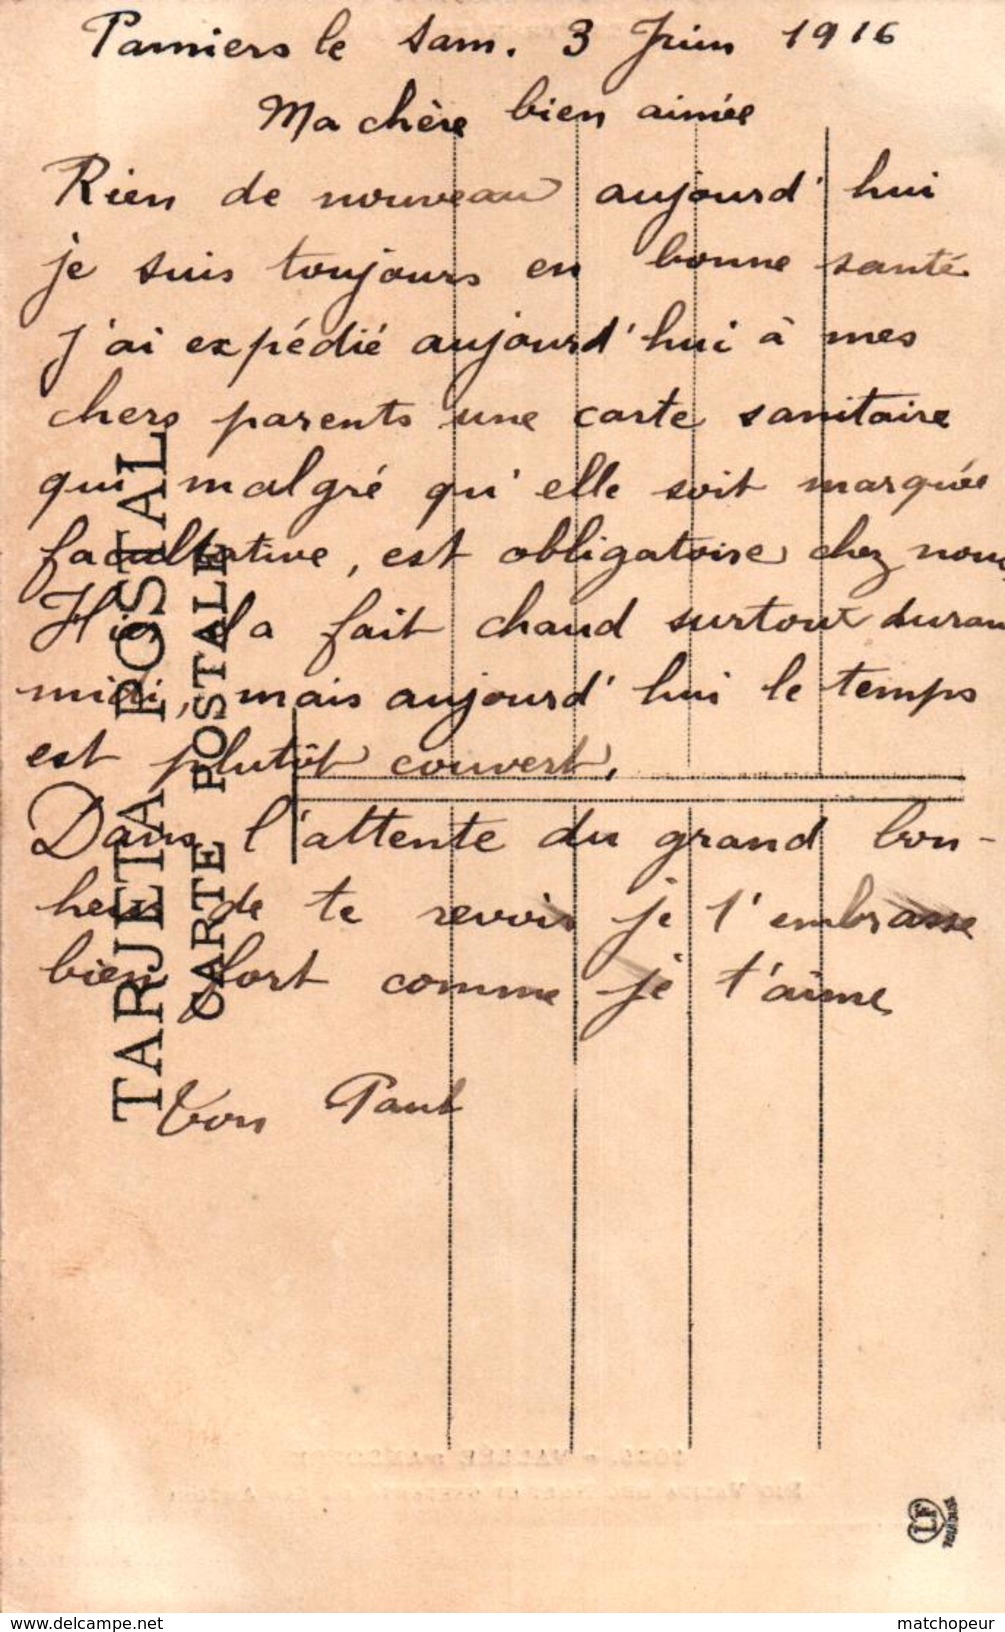 Pamiers le sam. 3 Juin 1916
Ma chère bien aimée
Rien de nouveau aujourd'hui
je suis toujours en bonne santé
J'ai expédié aujourd'hui à mes
chers parents une carte sanitaire
qui malgré qu'elle soit marquée
facultative, est obligatoire chez nous
Hier la fait chaud surtout duran
midi, mais aujourd'hui le temps
est plutôt couvert,
Dans l'attente du grand bon-
heur de te revoir je t'embrasse
bien fort comme je t'aime
Ton Paul
TARJETA POSTAL
CARTE POSTALE
www.delcampe.net
matchopeur